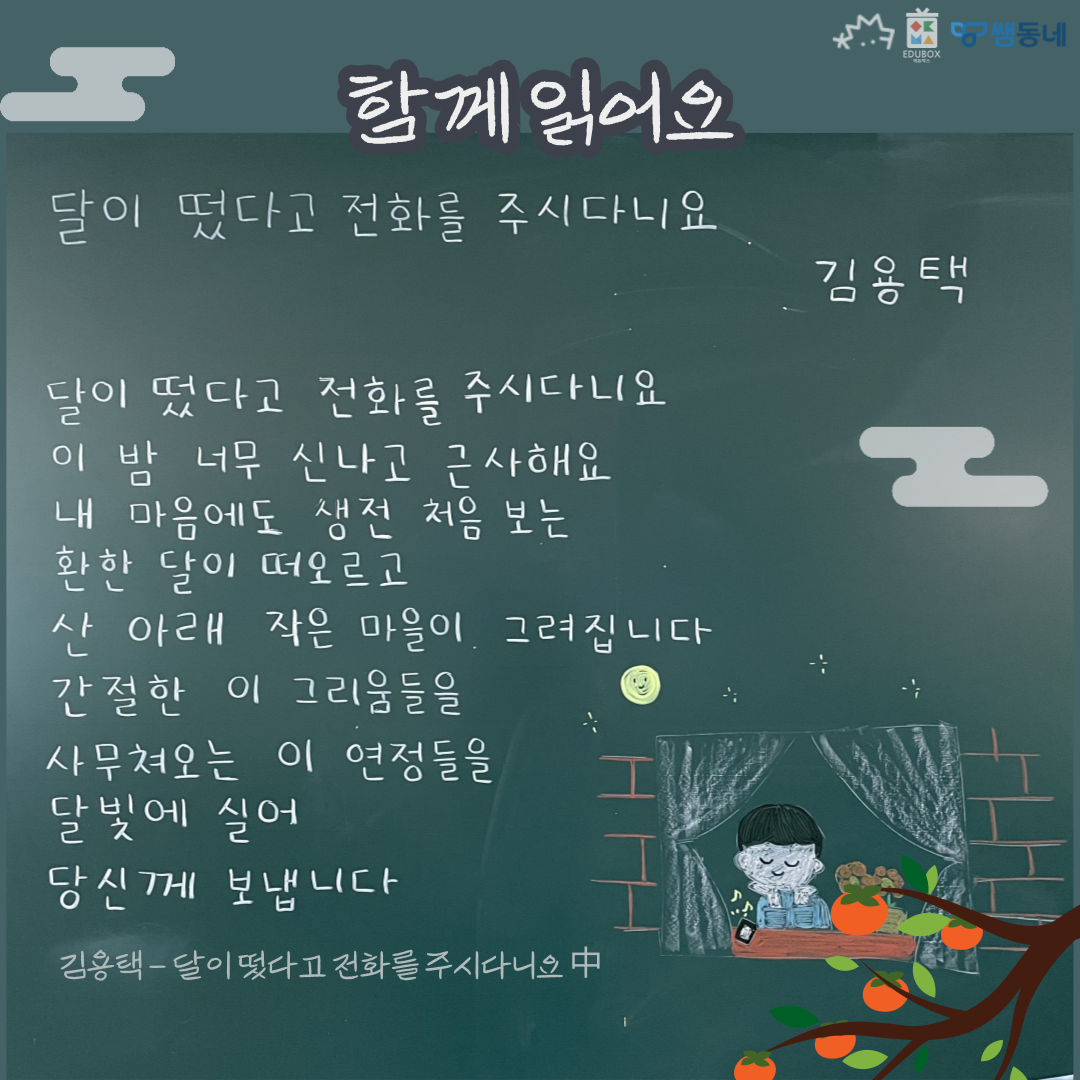 EDUBOX
에듀박스
쌤동네
함께 읽어요
달이 떴다고 전화를 주시다니요
김용택
달이 떴다고 전화를 주시다니요
이 밤 너무 신나고 근사해요
내 마음에도 생전 처음 보는
환한 달이 떠오르고
산 아래 작은 마을이 그려집니다
간절한 이 그리움들을
사무쳐오는 이 연정들을
달빛에 실어
당신께 보냅니다
김용택 - 달이 떴다고 전화를 주시다니요 中